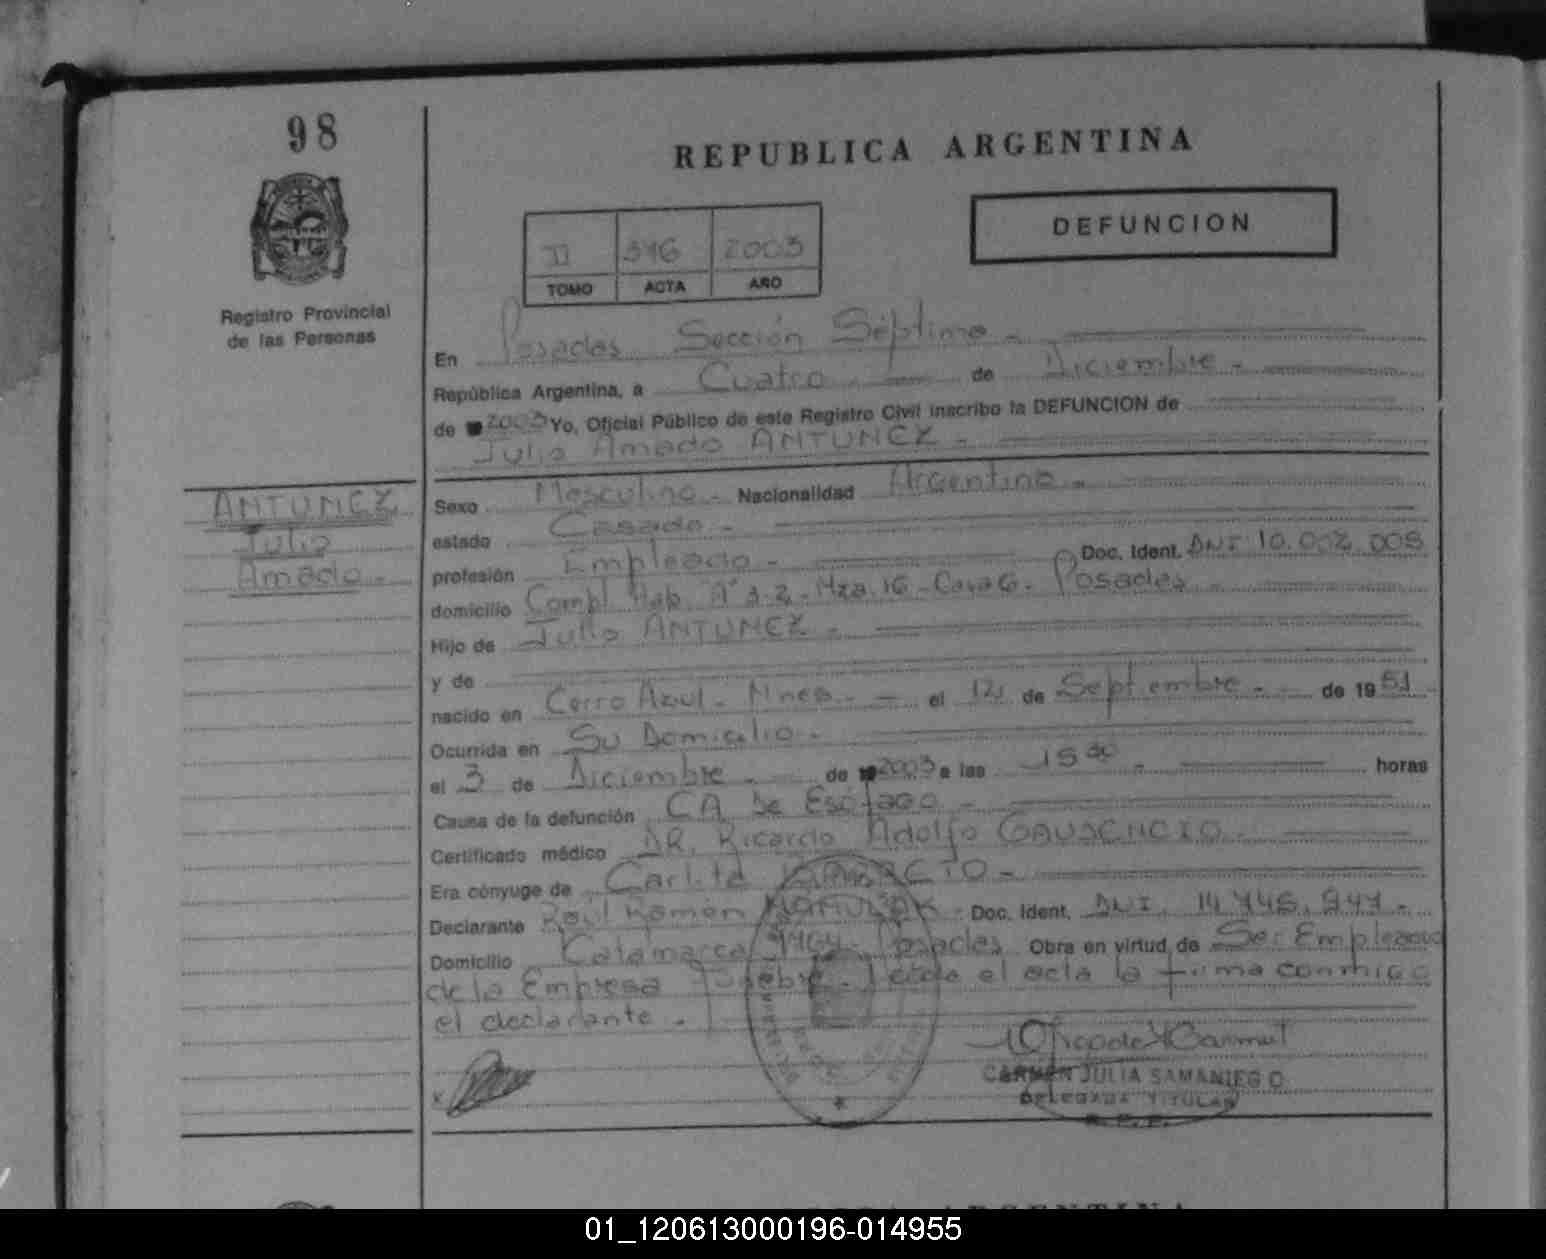 98
REPUBLICA ARGENTINA
DEFUNCION
II 2003
TOMO ACTA AÑO
Registro Provincial
de las Personas
En Posadas Sección Séptima -
República Argentina, a Cuatro - de Diciembre -
de 2003 Yo, Oficial Público de este Registro Civil inscribo la DEFUNCION de
Julio Amado ANTUNEZ -
ANTUNEZ
Julio
Amado -
Sexo Masculino - Nacionalidad Argentina -
estado Casado -
profesión Empleado - Doc. Ident. DNI 10.002.008
domicilio Compl Hab. "A" 3-2 - Mza. 16 - Casa 6. Posadas -
Hijo de Julio ANTUNEZ -
y de
nacido en Cerro Azul - Mnes - el 12 de Septiembre - de 1951
Ocurrida en Su Domicilio -
el 3 de Diciembre - de 2003 a las 15 30 - horas
Causa de la defunción CA De Esófago -
Certificado médico DR. Ricardo Adolfo
Era cónyuge de Carlita
Declarante Raúl Ramón Doc. Ident. DNI. 14.
Domicilio Catamarca Posadas Obra en virtud de Ser Empleado
de la Empresa Fúnebre. Leída el acta la firma conmigo
el declarante -
x
CARMEN JULIA SAMANIEGO
DELEGADA TITULAR
R.P.P.
01_120613000196-014955